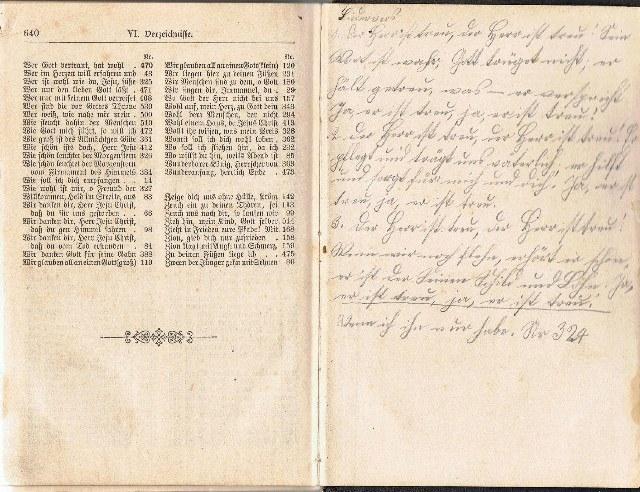 640 VI. Verzeichnisse.
Nr.
Wer Gott vertraut, hat wohl . 470
Wer im Herzen will erfahren und 43
Wer ist wohl wie du, Jesu, süße 325
Wer nur den lieben Gott läßt . 471
Wer nur mit seinem Gott verreiset 408
Wer sind die vor Gottes Throne 539
Wer weiß, wie nahe mir mein . 500
Wie feucht dahin der Menschen 510
Wie Gott mich führt, so will ich 472
Wie groß ist des Allmächtgen Güte 361
Wie schön ists doch, Herr Jesu 412
Wie schön leuchtet der Morgenstern 326
Wie schön leuchtet der Morgenstern
vom Firmament des Himmels 384
Wie soll ich dich empfangen . . 14
Wie wohl ist mir, o Freund der 327
Willkommen, Held im Streite, aus 83
Wir danken dir, Herr Jesu Christ,
daß du für uns gestorben . . 66
Wir danken dir, Herr Jesu Christ,
daß du gen Himmel fahren . 98
Wir danken dir, Herr Jesu Christ,
daß du vom Tod erstanden . 84
Wir danken Gott für seine Gaben 388
Wir glauben all an einen Gott (groß) 119
Nr.
Wir glauben all an einen Gott (klein) 120
Wir liegen hier zu deinen Füßen 231
Wir Menschen sind zu dem, o Gott 180
Wir singen dir, Immanuel, du . 29
Wo Gott der Herr nicht bei uns 157
Wohl auf, mein Herz, zu Gott dein 443
Wohl dem Menschen, der nicht 204
Wohl einem Haus, da Jesus Christ 413
Wollt ihr wissen, was mein Preis 328
Womit soll ich dich wohl loben . 362
Wo soll ich fliehen hin, da ich 232
Wo willst du hin, weils Abend ist 85
Wunderbarer König, Herrscher von 363
Wunderanfang, herrlich Ende . 473
Zeige dich uns ohne Hülle, ström 142
Zeuch ein zu deinen Thoren, sei 143
Zeuch uns nach dir, so laufen wir 99
Zieh hin, mein Kind, Gott selber 541
Zieht in Frieden eure Pfade! Mit 168
Zion, gieb dich nur zufrieden . 158
Zion klagt mit Angst und Schmerzen 159
Zu deinen Füßen liege ich . . 475
Zween der Jünger gehn mit Sehnen 86
1. der Herr ist treu, der Herr ist treu! Sein
Wort ist wahr; Gott trüget nicht; er
hält getreu, was er verspricht.
Ja, er ist treu, ja, er ist treu!
2. der Herr ist treu, der Herr ist treu! Er
pflegt und trägt uns väterlich, er hilft
und sorgt für mich und dich. Ja, er ist
treu, ja, er ist treu.
3. der Herr ist treu, der Herr ist treu!
Wenn wir nur flehn, erhört er schon,
er ist der Seinen Schild und Lohn. Ja,
er ist treu, ja, er ist treu!
Wenn ich ihn nur habe. Nr 324